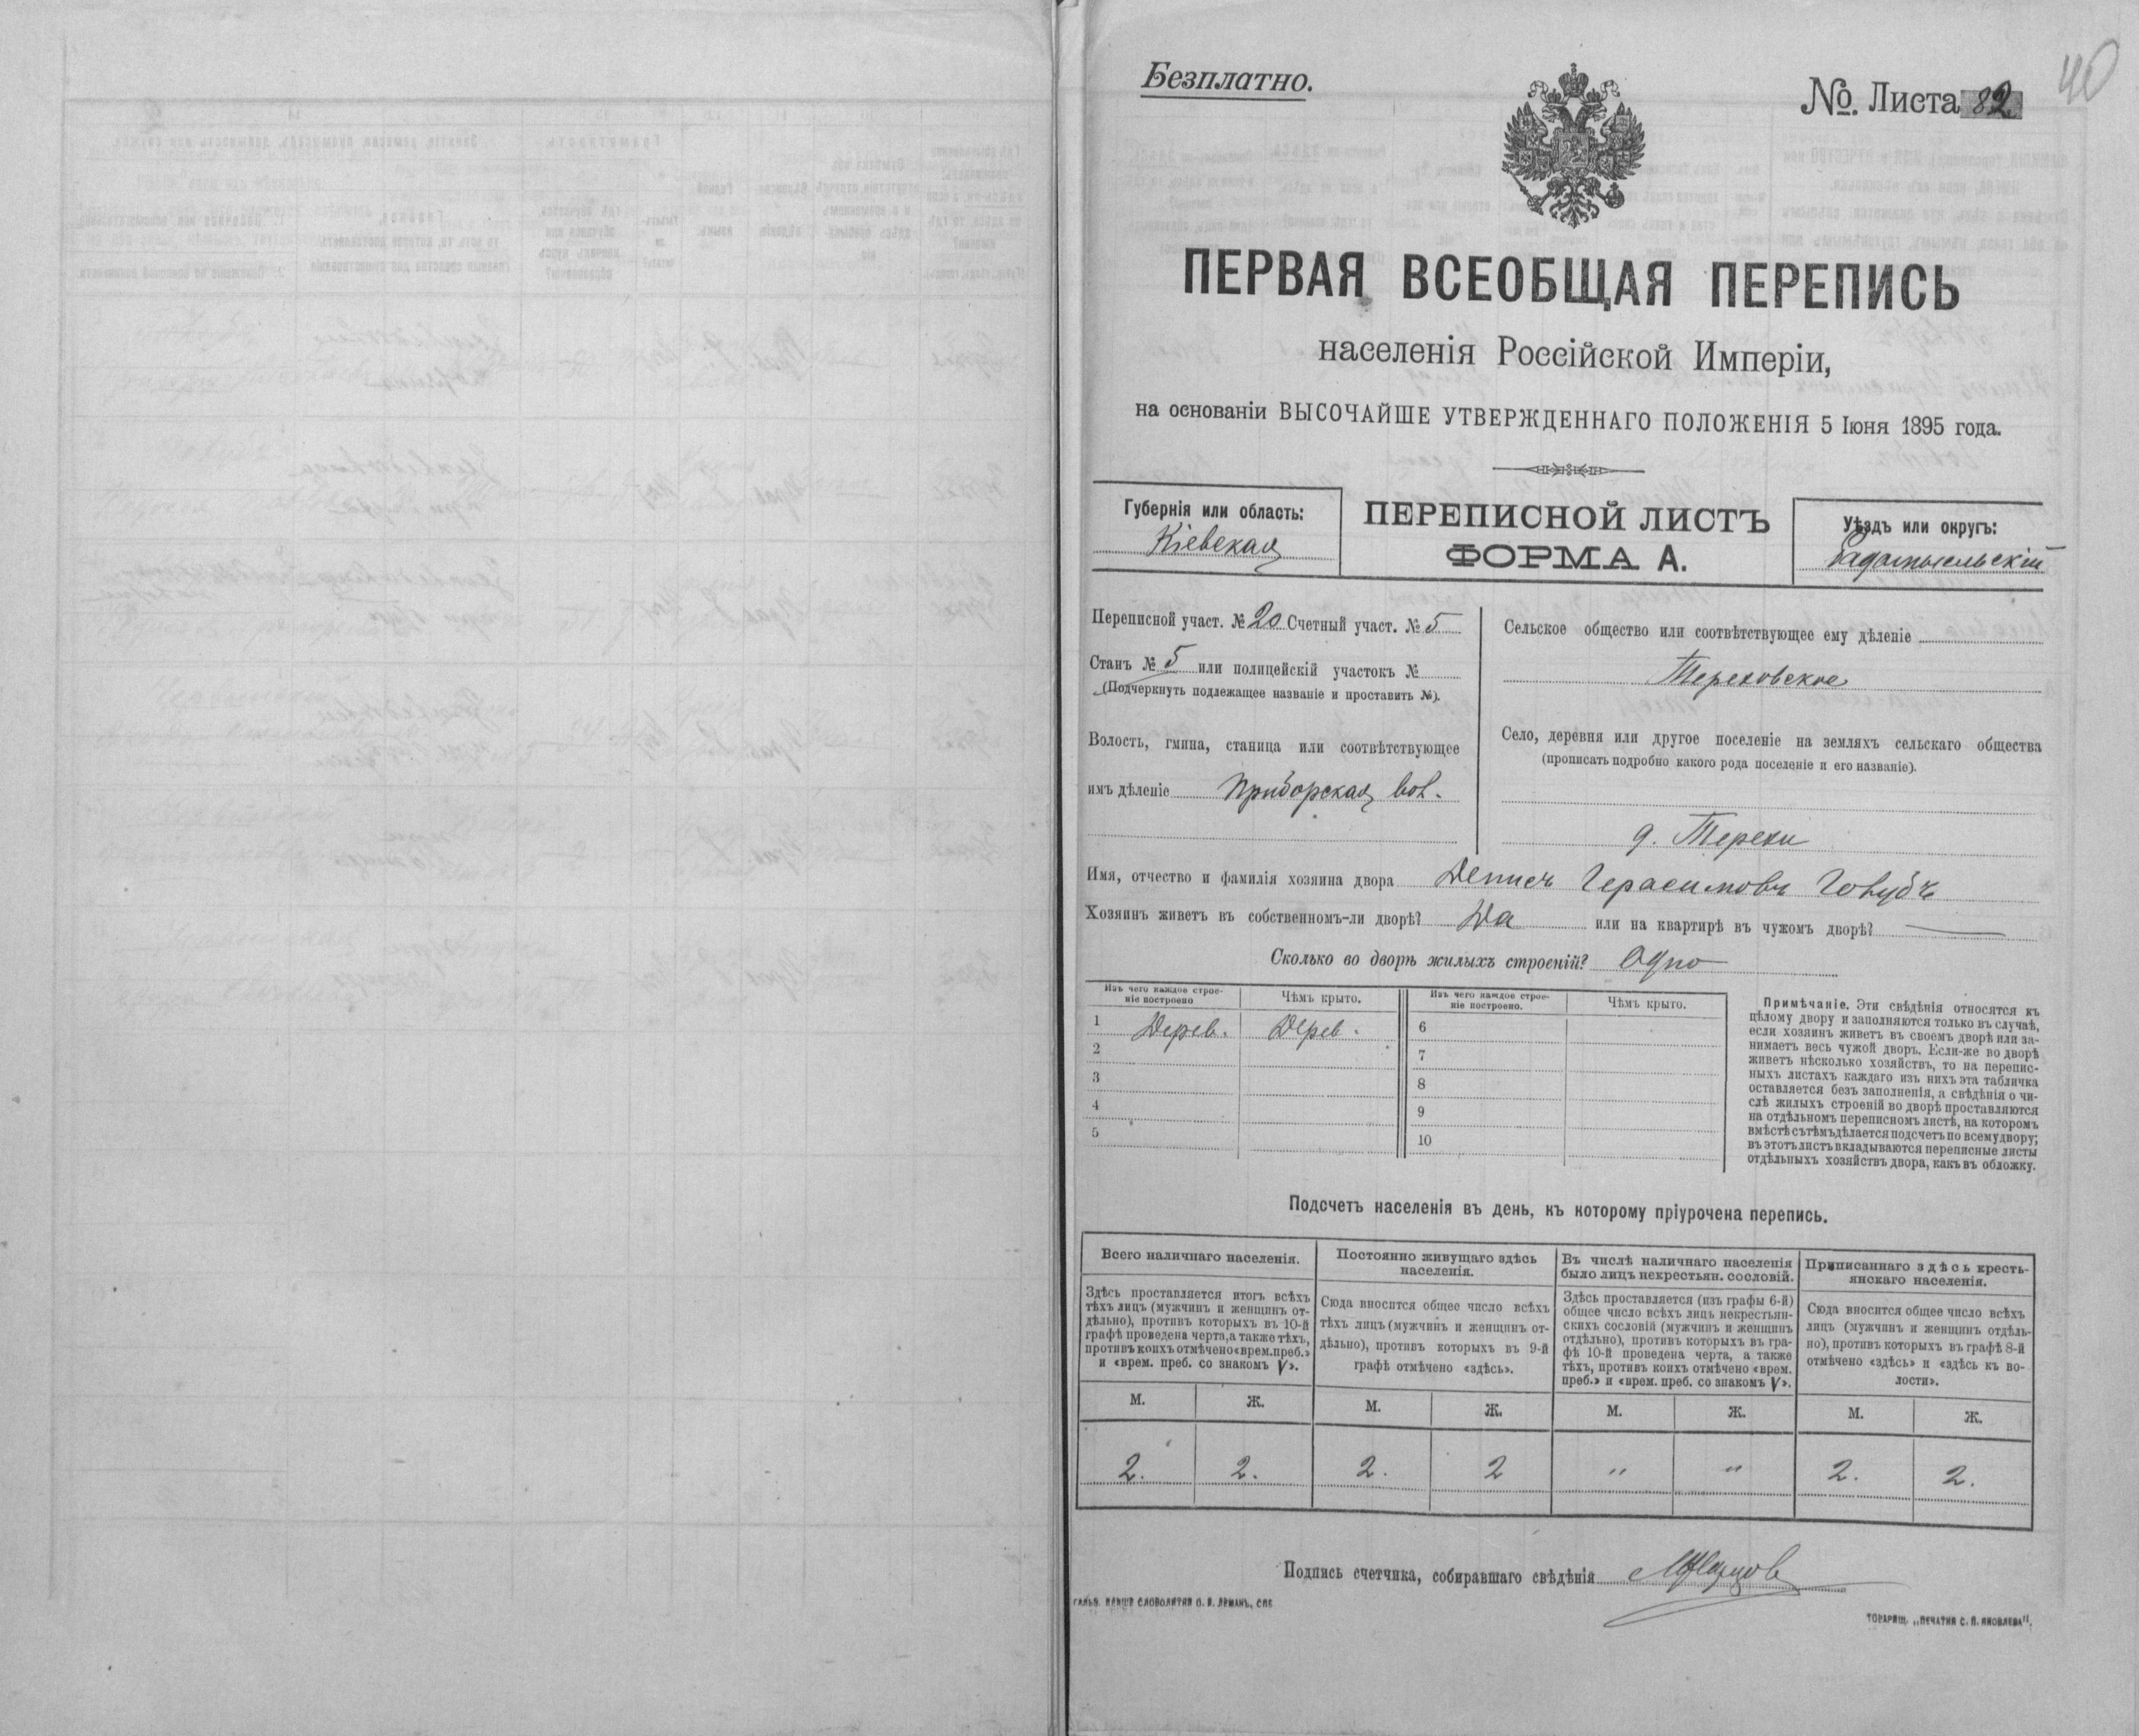 Безплатно.
40
№ Листа 82
ПЕРВАЯ ВСЕОБЩАЯ ПЕРЕПИСЬ
населенія Россійской Имперіи,
на основаніи ВЫСОЧАЙШЕ УТВЕРЖДЕННАГО ПОЛОЖЕНІЯ 5 Іюня 1895 года.
Губернія или область:
Кіевская
ПЕРЕПИСНОЙ ЛИСТЪ
ФОРМА А.
Уѣздъ или округъ:
Радомысльскій
Переписной участ. № 20 Счетный участ. № 5
Станъ № 5 или полицейскій участокъ №
(Подчеркнуть подлежащее названіе и проставить №).
Волость, гмина, станица или соотвѣтствующее
имъ дѣленіе Приборская вол.
Сельское общество или соотвѣтствующее ему дѣленіе
Тереховское
Село, деревня или другое поселеніе на земляхъ сельскаго общества
(прописать подробно какого рода поселеніе и его названіе).
д. Терехи
Имя, отчество и фамилія хозяина двора Денисъ Герасимовъ Голубъ
Хозяинъ живетъ въ собственномъ-ли дворѣ? Да или на квартирѣ въ чужомъ дворѣ? —
Сколько во дворѣ жилыхъ строеній? Одно
Изъ чего каждое строе-
ніе построено
Чѣмъ крыто.
Изъ чего каждое строе-
ніе построено.
Чѣмъ крыто.
1 Дерев. Дерев. 6
2 7
3 8
4 9
5 10
Примѣчаніе. Эти свѣдѣнія относятся къ
цѣлому двору и заполняются только въ случаѣ,
если хозяинъ живетъ въ своемъ дворѣ или за-
нимаетъ весь чужой дворъ. Если-же во дворѣ
живетъ нѣсколько хозяйствъ, то на перепис-
ныхъ листахъ каждаго изъ нихъ эта табличка
оставляется безъ заполненія, а свѣдѣнія о чи-
слѣ жилыхъ строеній во дворѣ проставляются
на отдѣльномъ переписномъ листѣ, на которомъ
вмѣстѣ съ тѣмъ дѣлается подсчетъ по всему двору;
въ этотъ листъ вкладываются переписные листы
отдѣльныхъ хозяйствъ двора, какъ въ обложку.
Подсчетъ населенія въ день, къ которому пріурочена перепись.
Всего наличнаго населенія.
Здѣсь проставляется итогъ всѣхъ
тѣхъ лицъ (мужчинъ и женщинъ от-
дѣльно), противъ которыхъ въ 10-й
графѣ проведена черта, а также тѣхъ,
противъ коихъ отмѣчено «врем. преб.»
и «врем. преб. со знакомъ V».
Постоянно живущаго здѣсь
населенія.
Сюда вносится общее число всѣхъ
тѣхъ лицъ (мужчинъ и женщинъ от-
дѣльно), противъ которыхъ въ 9-й
графѣ отмѣчено «здѣсь».
Въ числѣ наличнаго населенія
было лицъ некрестьян. сословій.
Здѣсь проставляется (изъ графы 6-й)
общее число всѣхъ лицъ некрестьян-
скихъ сословій (мужчинъ и женщинъ
отдѣльно), противъ которыхъ въ гра-
фѣ 10-й проведена черта, а также
тѣхъ, противъ коихъ отмѣчено «врем.
преб.» и «врем. преб. со знакомъ V».
Приписаннаго здѣсь кресть-
янскаго населенія.
Сюда вносится общее число всѣхъ
лицъ (мужчинъ и женщинъ отдѣль-
но), противъ которыхъ въ графѣ 8-й
отмѣчено «здѣсь» и «здѣсь къ во-
лости».
М. Ж. М. Ж. М. Ж. М. Ж.
2. 2. 2. 2 " " 2. 2.
Подпись счетчика, собиравшаго свѣдѣнія
СЛОВОЛИТНЯ О. И. ЛЕМАНЪ, СПБ
ТОВАРИЩ. „ПЕЧАТНЯ С. П. ЯКОВЛЕВА".